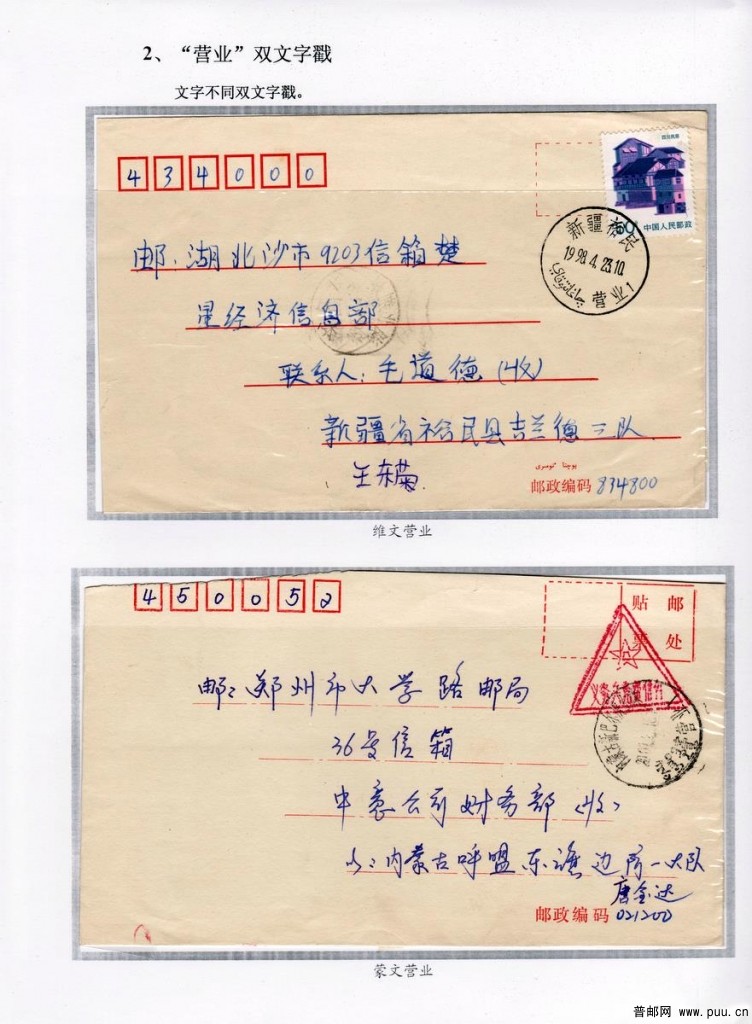 2、“营业”双文字戳
文字不同双文字戳。
434000
50 中国人民邮政
新疆裕民
1998.4.23.10
营业1
邮:湖北沙市9203信箱楚
星经济信息部
联系人:毛道德(收)
新疆省裕民县吉兰德三队
王东菊
邮政编码 834800
维文营业
450052
贴邮
票处
义务兵免费信件
邮:郑州市大学路邮局
36号信箱
中意公司财务部(收)
内蒙古呼盟东旗边防一大队
唐金达
邮政编码 021200
蒙文营业
普邮网 www.puu.cn